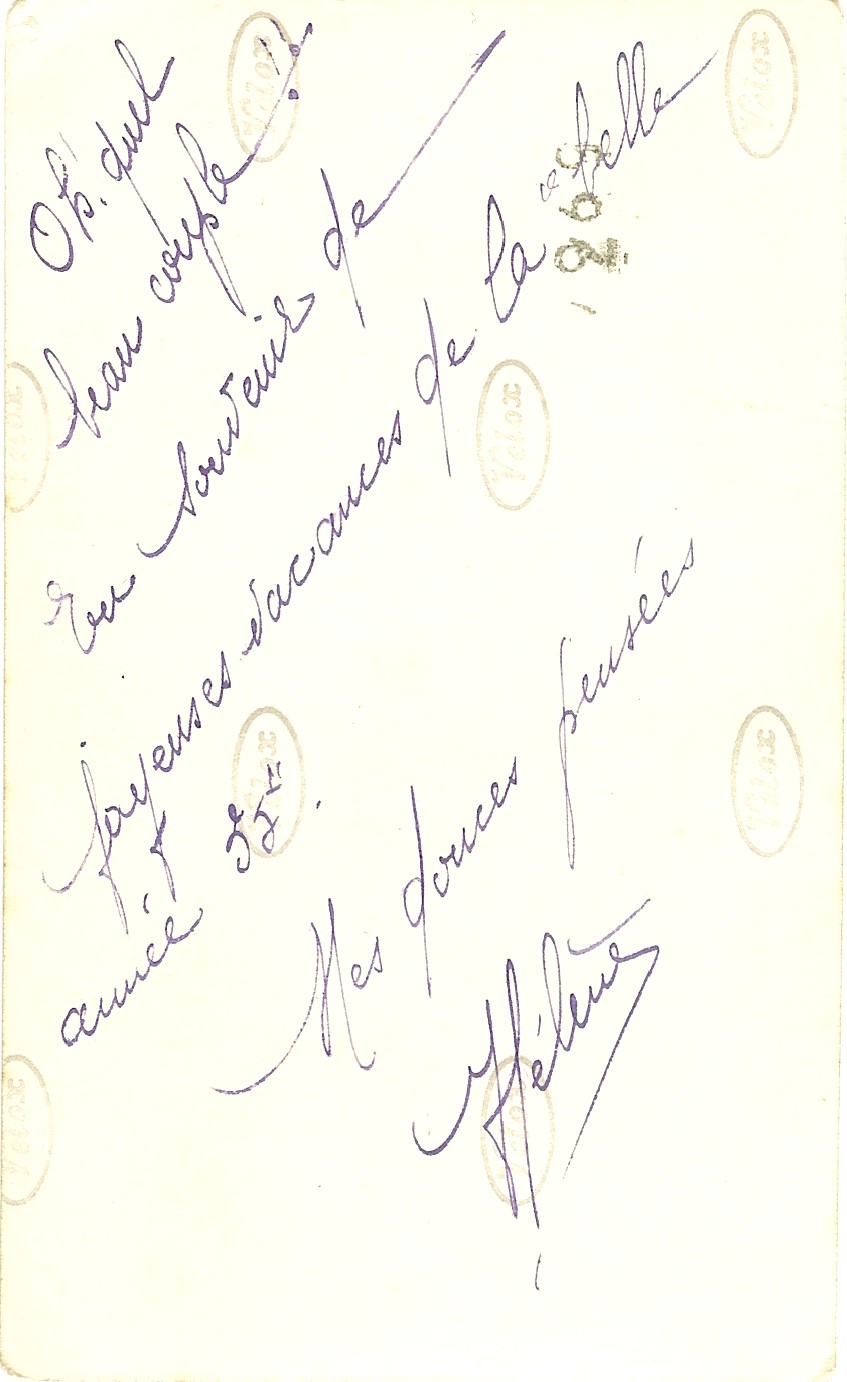 Oh! quel
beau couple !!
En souvenir de
joyeuses vacances de la "belle
année 55"
Mes douces pensées
Hélène
Velox
Velox
Velox
Velox
Velox
Velox
Velox
Velox